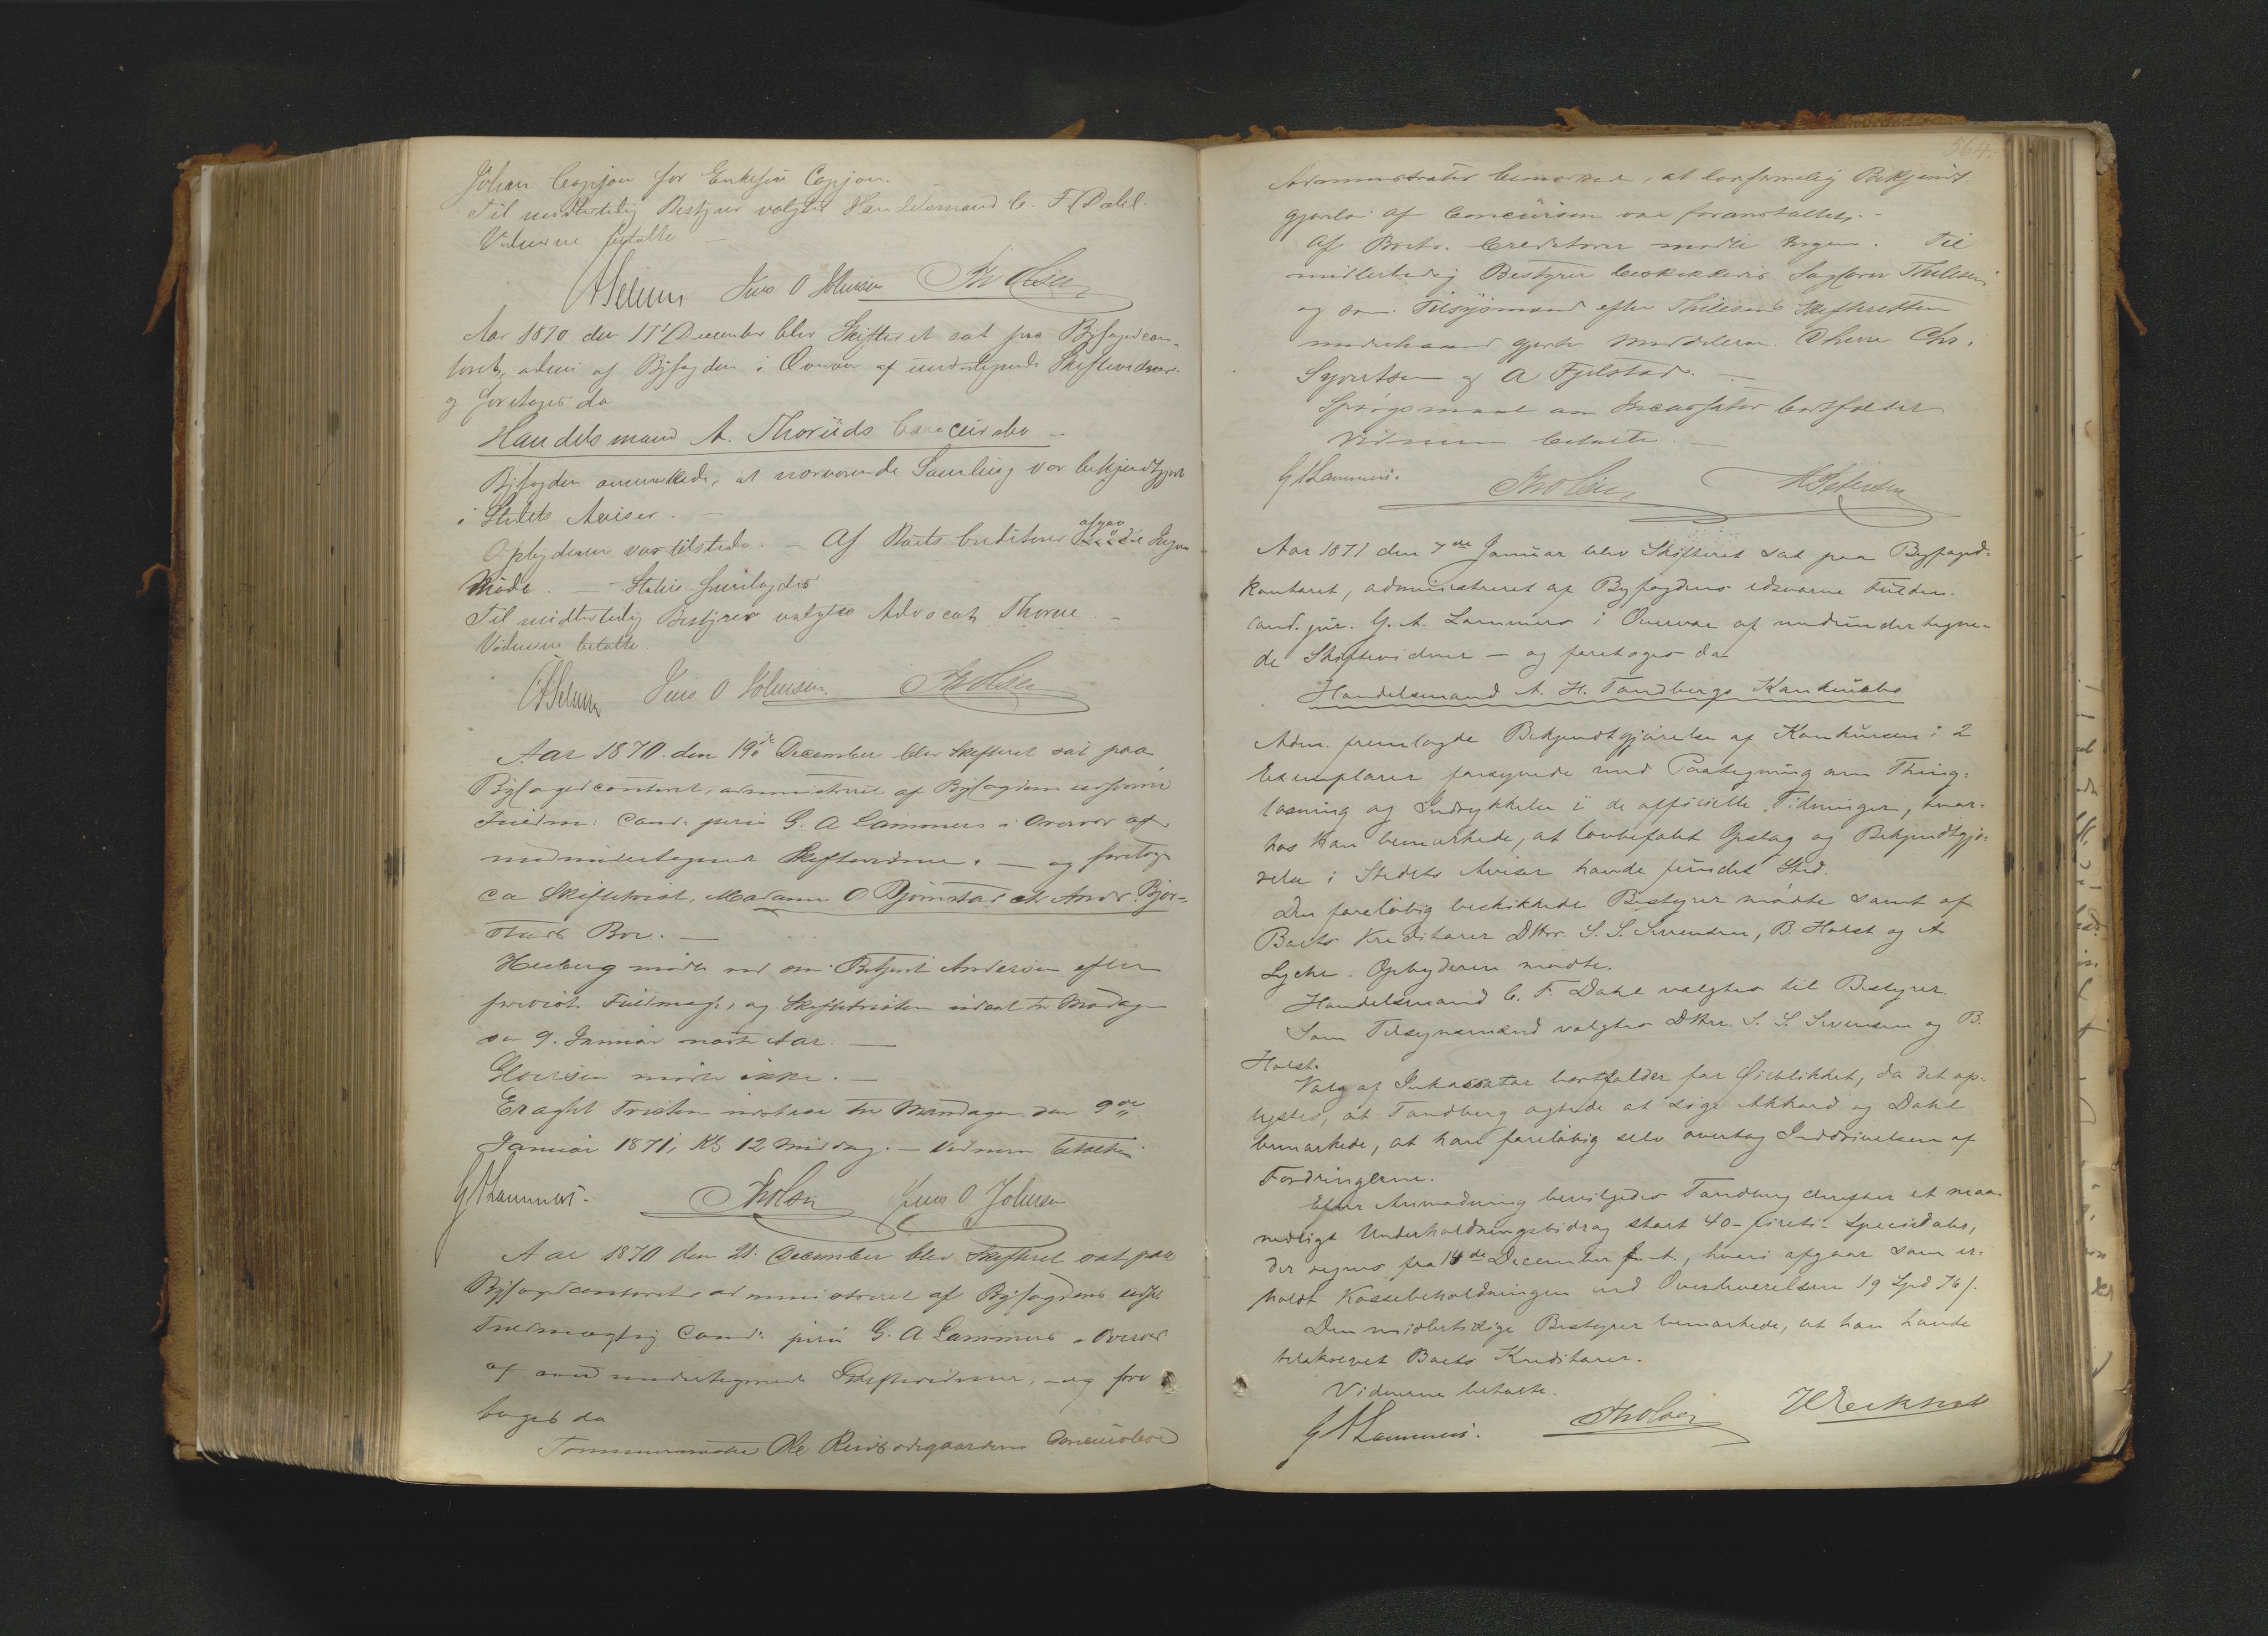 Johan Copjon for Enkefru Copjon.
Til midlertidig Bestyrer valgtes Handelsmand C. F. Dahl
Vidnerne betalte
Jens O Johnsen Th Olsen
Aar 1870 den 17 December blev Skifteret sat paa Byfogedcon-
toret, adm af Byfogden i Overvær af undertegnede Skiftevidner
og foretoges da
Handelsmand A. Thoruds Concursbo
Byfogden anmærkede, at nærværende Samling var bekjendtgjort
i Stedets Aviser.
Opbyderen var tilstede. – Af Boets Creditorer afgav Ingen
Møde. – Status fremlagdes
Til midlertidig Bestyrer valgtes Advocat Thorne
Vidnerne betalte.
Jens O Johnsen. Th Olsen
Aar 1870. den 19de December blev Skifteret sat paa
Byfogedcontoret, administreret af Byfogdens edsvorne
Fuldm: Cand. juris G. A Lammers i Overvær af
medundertegnede Skiftevidner. – og foretoges
da Skiftetvist, Madame O Bjørnstad ctr Andr. Bjør-
stads Boe. –
Heiberg mødte ved sin Betjent Andersen efter
forevist Fuldmagt, og Skiftetvisten udsat til Mandag
den 9. Januar næste Aar. –
mødte ikke. –
Eragtet Tvisten udsættes til Mandagen den 9de
Januar 1871, Kl 12 Middag. – Vidnerne betalte.
G A Lammers. Th Olsen Jens O Johnsen
Aar 1870 den 21. December blev Skifteret sat paa
Byfogedcontoret administreret af Byfogdens edsv.
Fuldmægtig Cand: juris G. A Lammers i Overvær
af medundertegnede Skiftevidner, – og fore
toges da
Tømmermester Ole Concursboe
564.
Administrator bemærkede, at lovformelig Bekjendt
gjørelse af Concursen var foranstaltet. –
Af Boets Creditorer mødte Ingen. Til
midlertidig Bestyrer beskikkedes Sagfører Thilesen
og som Tilsynsmænd efter Thilesens Skifteretten
underhaanden gjorte Meddelelse DHerrer Chr.
Syvertsen og A Fjelstad. –
Spørgsmaal om Incassator bortfalder
Vidnerne betalte. –
G A Lammers. Th Olsen H Petersen
Aar 1871 den 7de Januar blev Skifteret sat paa Byfoged-
kontoret, administreret af Byfogdens edsvorne Fuldm.
cand. jur. G. A. Lammers i Overvær af medundertegne-
de Skiftevidner – og foretoges da
Handelsmand A. H. Tandbergs Konkursbo
Adm. fremlagde Bekjendtgjørelse af Konkursen i 2
Exemplarer forsynede med Paategning om Thing-
læsning og Indrykkelse i de officielle Tidninger, hvor-
hos han bemærkede, at lovbefalet Opslag og Bekjendtgjø-
relse i Stedets Aviser havde fundet Sted.
Den foreløbig beskikkede Bestyrer mødte samt af
Boets Kreditorer DHrr. S. S. Svensen, B. Holst og A
Lyche. Opbyderen mødte.
Handelsmand C. F. Dahl valgtes til Bestyrer.
Som Tilsynsmænd valgtes DHrr. S. S. Svensen og B.
Holst.
Valg af Inkassator bortfalder for Øieblikket, da det op-
lystes, at Tandberg agtede at søge Akkord og Dahl
bemærkede, at han foreløbig selv overtog Inddrivelsen af
Fordringerne.
Efter Anmodning bevilgedes Tandberg derefter et maa-
nedligt Underholdningsbidrag stort 40 – fireti – Speciedaler,
der regnes fra 14de December f. A., hvori afgaar som er-
holdt Kassebeholdningen ved Overleverelsen 19 Spd 76 s.
Den midlertidige Bestyrer bemærkede, at han havde
tilskrevet Boets Kreditorer.
Vidnerne betalte.
G A Lammers. Th Olsen